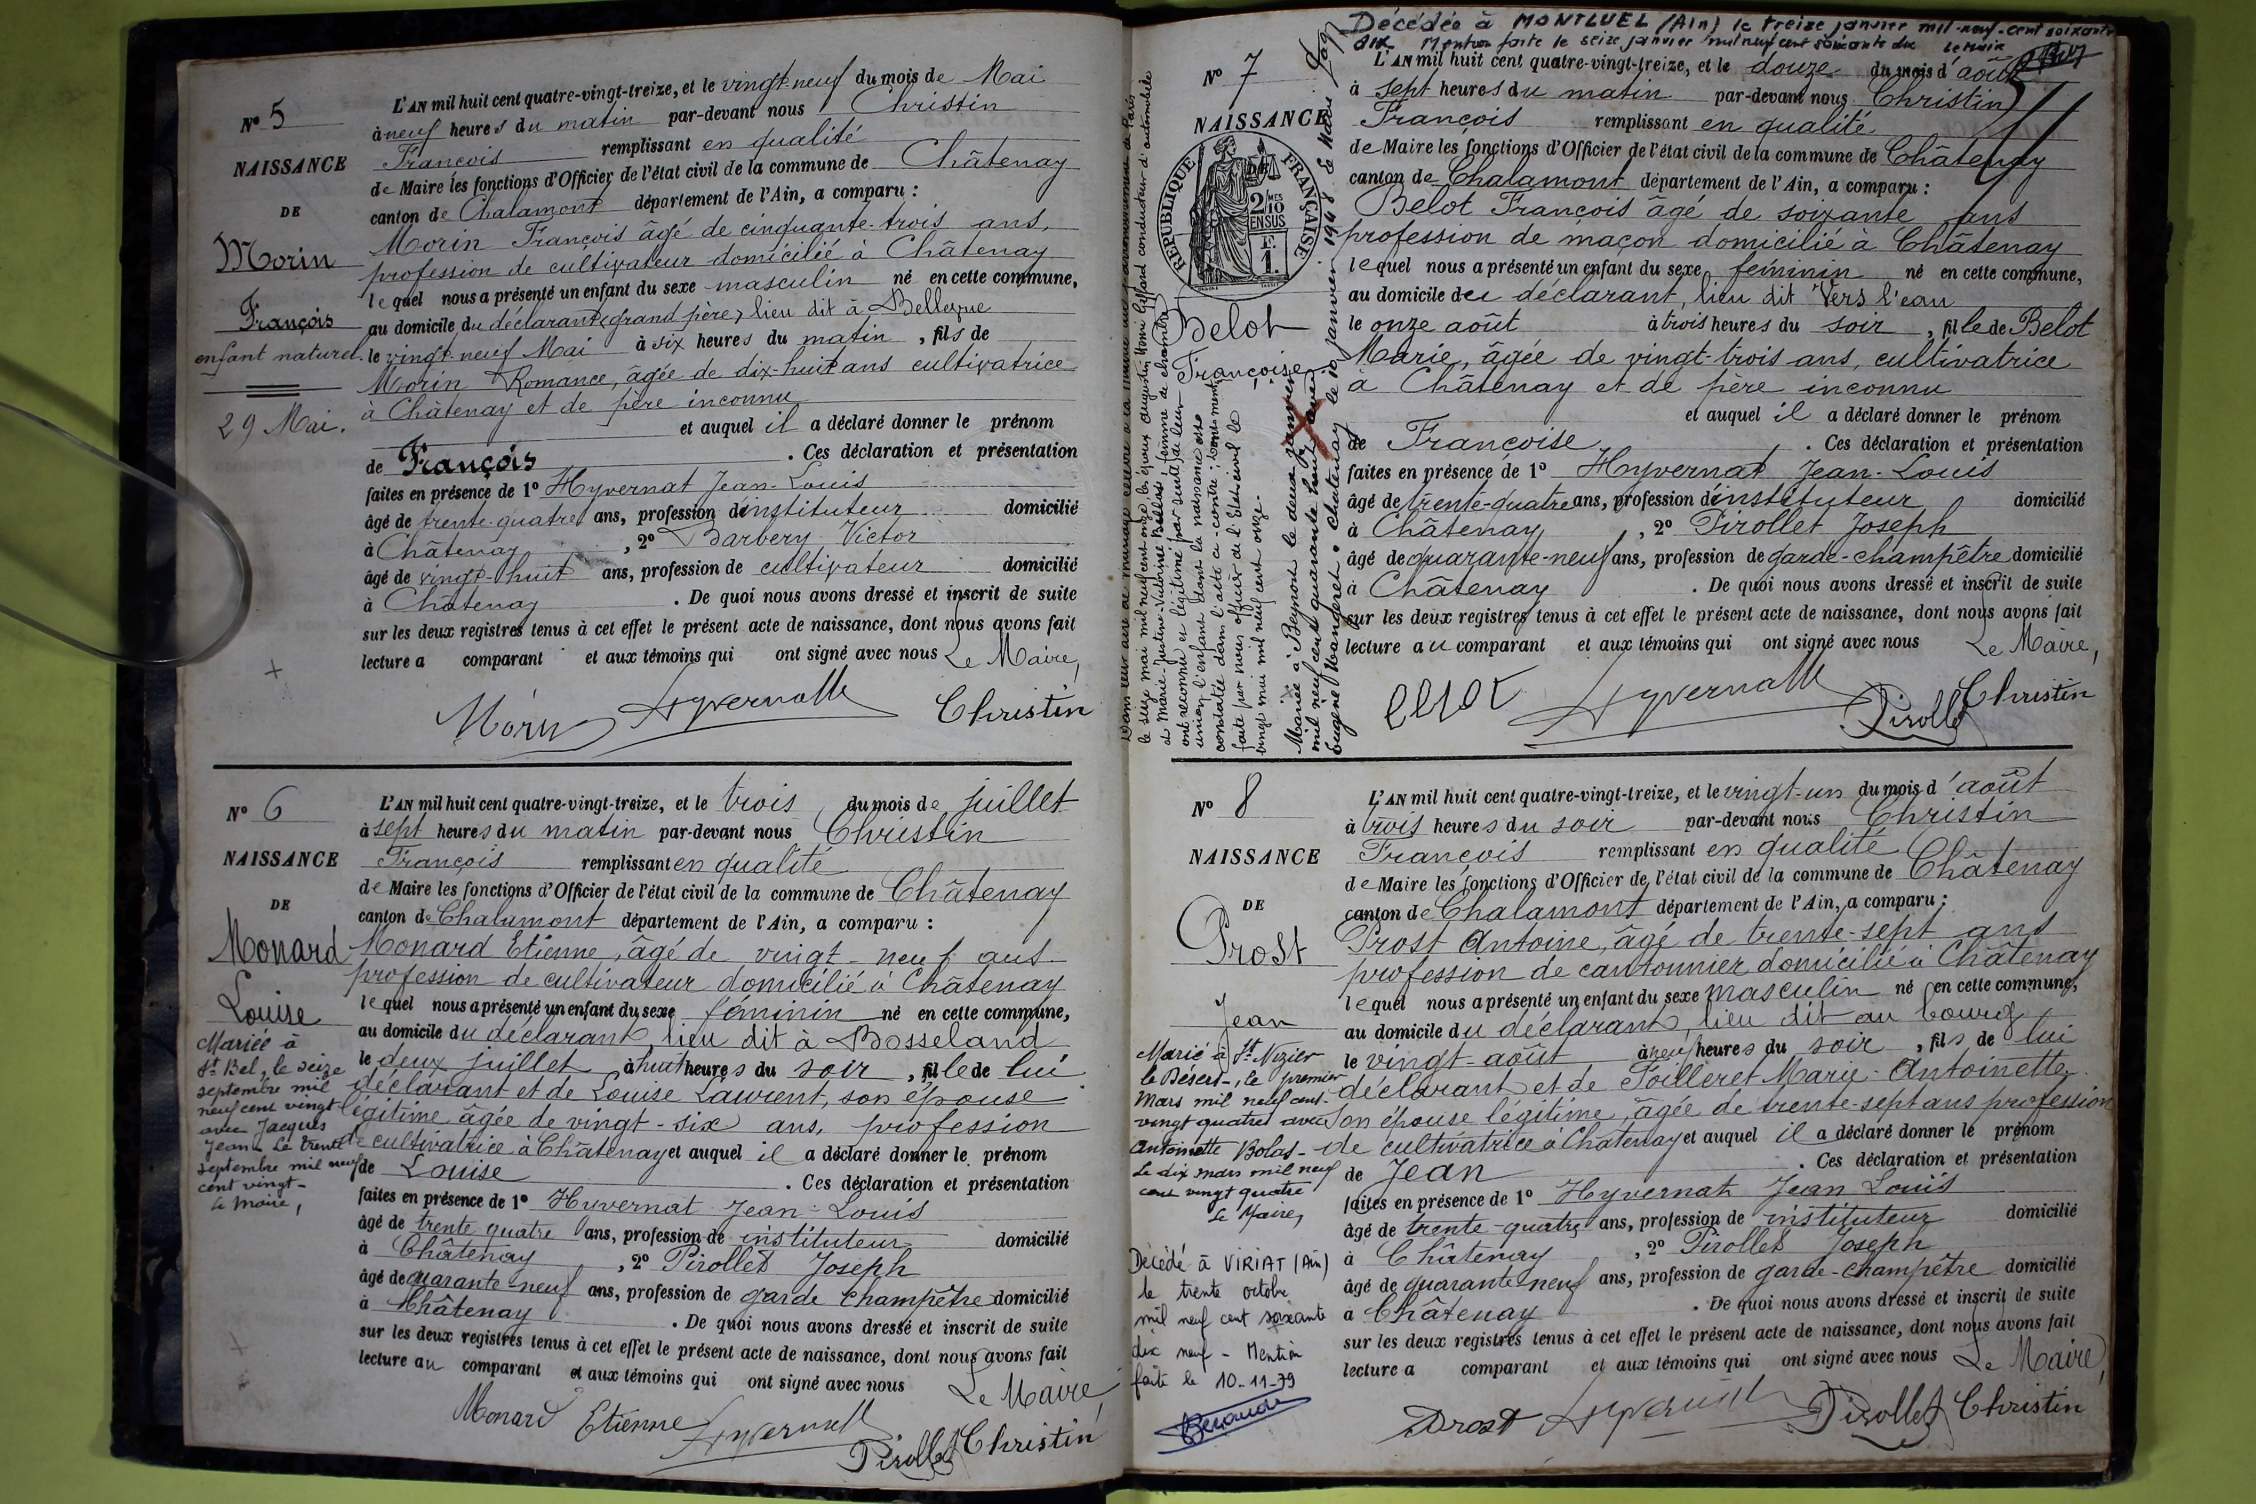 N° 5
NAISSANCE
DE
Morin
François
enfant naturel.
29 Mai.
L'AN mil huit cent quatre-vingt-treize, et le vingt-neuf du mois de Mai
à neuf heures du matin par-devant nous Christin
François remplissant en qualité
de Maire les fonctions d'Officier de l'état civil de la commune de Châtenay
canton de Chalamont département de l'Ain, a comparu :
Morin François âgé de cinquante-trois ans,
profession de cultivateur domicilié à Châtenay
lequel nous a présenté un enfant du sexe masculin né en cette commune,
au domicile du déclarant (grand père) lieu dit à Bellevue
le vingt-neuf Mai à six heures du matin, fils de
Morin Romance, âgée de dix-huit ans cultivatrice
à Châtenay et de père inconnu
et auquel il a déclaré donner le prénom
de François . Ces déclaration et présentation
faites en présence de 1° Hyvernat Jean-Louis
âgé de trente-quatre ans, profession d'instituteur domicilié
à Châtenay, 2° Barbery Victor
âgé de vingt-huit ans, profession de cultivateur domicilié
à Châtenay . De quoi nous avons dressé et inscrit de suite
sur les deux registres tenus à cet effet le présent acte de naissance, dont nous avons fait
lecture a comparant et aux témoins qui ont signé avec nous Le Maire,
Morin Hyvernatt Christin
N° 6
NAISSANCE
DE
Monard
Louise
Mariée à
St Bel, le seize
septembre mil
neuf cent vingt
avec Jacques
Jean. Le trente
septembre mil neuf
cent vingt-
Le Maire,
L'AN mil huit cent quatre-vingt-treize, et le trois du mois de juillet
à sept heures du matin par-devant nous Christin
François remplissant en qualité
de Maire les fonctions d'Officier de l'état civil de la commune de Châtenay
canton de Chalamont département de l'Ain, a comparu :
Monard Etienne, âgé de vingt-neuf ans
profession de cultivateur domicilié à Châtenay
lequel nous a présenté un enfant du sexe féminin né en cette commune,
au domicile du déclarant, lieu dit à Bosseland
le deux juillet à huit heures du soir, fille de lui
déclarant et de Louise Laurent, son épouse
légitime, âgée de vingt-six ans, profession
de cultivatrice à Châtenay et auquel il a déclaré donner le prénom
de Louise . Ces déclaration et présentation
faites en présence de 1° Hyvernat Jean-Louis
âgé de trente quatre ans, profession de instituteur domicilié
à Châtenay, 2° Pirollet Joseph
âgé de quarante-neuf ans, profession de garde champêtre domicilié
à Châtenay . De quoi nous avons dressé et inscrit de suite
sur les deux registres tenus à cet effet le présent acte de naissance, dont nous avons fait
lecture au comparant et aux témoins qui ont signé avec nous Le Maire,
Monard Etienne Hyvernatt Pirollet Christin
Décédée à MONTLUEL (Ain) le treize janvier mil-neuf-cent soixante
dix Mention faite le seize janvier mil neuf cent soixante dix Le Maire
N° 7
NAISSANCE
RÉPUBLIQUE FRANÇAISE
2/10 MES EN SUS
1 F.
Belot
Françoise
Dans leur acte de mariage
le seize mai mil neuf cent onze, les époux Augustin Henri conducteur d'automobile
et Marie femme de chambre
ont reconnu et légitimé par suite de leur
union, l'enfant dont la naissance est
constatée dans l'acte ci-contre ; mention
faite par nous officier de l'Etat civil le
vingt mai mil neuf cent onze.
Mariée à Beynost le deux janvier
mil neuf cent quarante huit avec
Eugène Mangeret. Chatenay le 10 janvier 1948. Le Maire
L'AN mil huit cent quatre-vingt-treize, et le douze du mois d'août
à sept heures du matin par-devant nous Christin
François remplissant en qualité
de Maire les fonctions d'Officier de l'état civil de la commune de Châtenay
canton de Chalamont département de l'Ain, a comparu :
Belot François âgé de soixante ans
profession de maçon domicilié à Châtenay
lequel nous a présenté un enfant du sexe féminin né en cette commune,
au domicile du déclarant, lieu dit Vers l'eau
le onze août à trois heures du soir, fille de Belot
Marie, âgée de vingt-trois ans, cultivatrice
à Châtenay et de père inconnu
et auquel il a déclaré donner le prénom
de Françoise . Ces déclaration et présentation
faites en présence de 1° Hyvernat Jean-Louis
âgé de trente-quatre ans, profession d'instituteur domicilié
à Châtenay, 2° Pirollet Joseph
âgé de quarante-neuf ans, profession de garde-champêtre domicilié
à Châtenay . De quoi nous avons dressé et inscrit de suite
sur les deux registres tenus à cet effet le présent acte de naissance, dont nous avons fait
lecture au comparant et aux témoins qui ont signé avec nous Le Maire,
Belot Hyvernatt Pirollet Christin
N° 8
NAISSANCE
DE
Prost
Jean
Marié à St Nizier
le Désert, le premier
Mars mil neuf cent
vingt quatre avec
Antoinette Bolas-
Le dix mars mil neuf
cent vingt quatre
Le Maire,
Décédé à VIRIAT (Ain)
le trente octobre
mil neuf cent soixante
dix neuf - Mention
faite le 10-11-79
L'AN mil huit cent quatre-vingt-treize, et le vingt-un du mois d'août
à trois heures du soir par-devant nous Christin
François remplissant en qualité
de Maire les fonctions d'Officier de l'état civil de la commune de Châtenay
canton de Chalamont département de l'Ain, a comparu :
Prost Antoine, âgé de trente-sept ans
profession de cantonnier domicilié à Châtenay
lequel nous a présenté un enfant du sexe masculin né en cette commune,
au domicile du déclarant, lieu dit au bourg
le vingt-août à neuf heures du soir, fils de lui
déclarant et de Poilleret Marie-Antoinette
son épouse légitime, âgée de trente-sept ans profession
de cultivatrice à Chatenay et auquel il a déclaré donner le prénom
de Jean . Ces déclaration et présentation
faites en présence de 1° Hyvernat Jean Louis
âgé de trente-quatre ans, profession de instituteur domicilié
à Châtenay, 2° Pirollet Joseph
âgé de quarante-neuf ans, profession de garde-champêtre domicilié
à Châtenay . De quoi nous avons dressé et inscrit de suite
sur les deux registres tenus à cet effet le présent acte de naissance, dont nous avons fait
lecture a comparant et aux témoins qui ont signé avec nous Le Maire,
Prost Hyvernatt Pirollet Christin